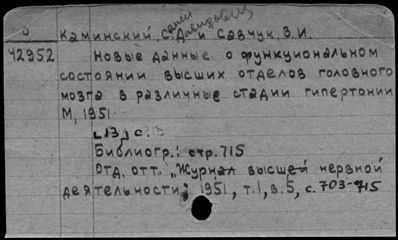 Каминский, С. Д. и Савчук, В. И.
Самей Давидович
42952 Новые данные о функциональном
состоянии высших отделов головного
мозга в различные стадии гипертонии
М, 1951
с.
Библиогр.: стр. 715
Отд. отт. „Журнал высшей нервной
деятельности", 1951, т. 1, в. 5, с. 703-715